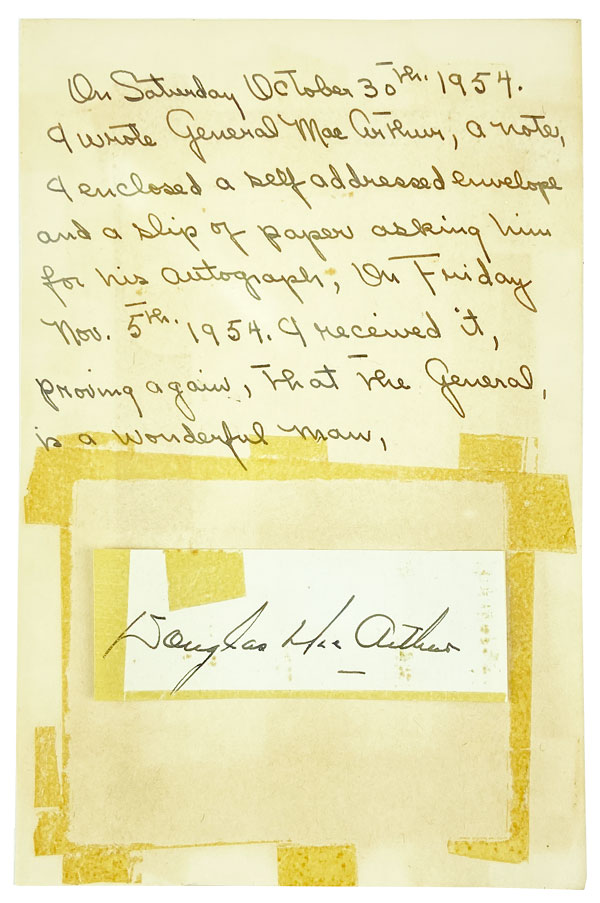 On Saturday October 30th. 1954.
I wrote General Mac Arthur, a note,
I enclosed a self addressed envelope
and a slip of paper asking him
for his autograph, On Friday
Nov. 5th. 1954. I received it,
proving again, that the General,
is a wonderful man,
Douglas MacArthur